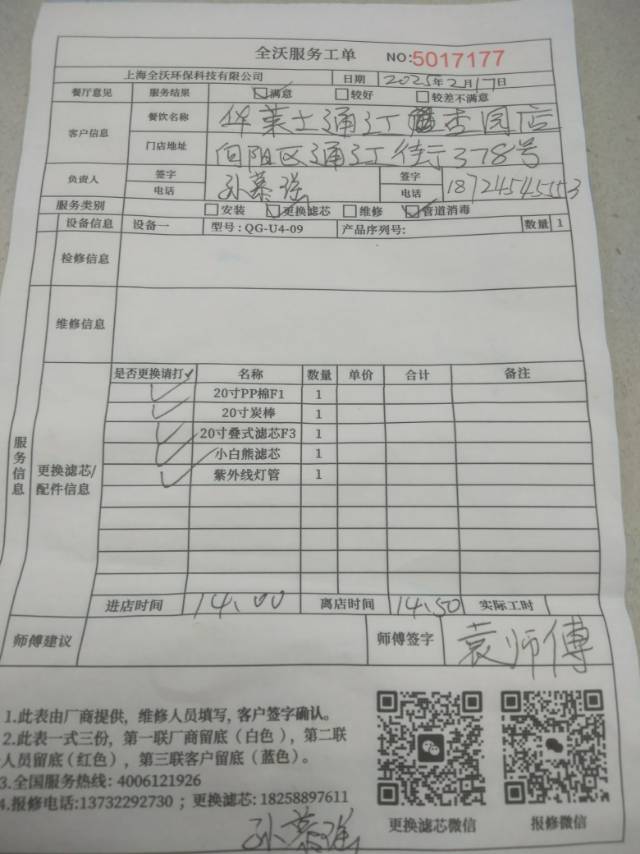 全沃服务工单 NO:5017177
上海全沃环保科技有限公司 日期 2025年2月17日
餐厅意见 服务结果 满意 较好 较差不满意
客户信息 餐饮名称 华莱士通江 杏园店
门店地址 向阳区通江街378号
负责人 签字 孙慕强 签字
电话 电话 18724545553
服务类别 安装 更换滤芯 维修 管道消毒
设备信息 设备一 型号:QG-U4-09 产品序列号: 数量 1
检修信息
维修信息
服务信息
更换滤芯/配件信息
是否更换请打✓ 名称 数量 单价 合计 备注
✓ 20寸PP棉F1 1
✓ 20寸炭棒 1
✓ 20寸叠式滤芯F3 1
✓ 小白熊滤芯 1
✓ 紫外线灯管 1
进店时间 14.00 离店时间 14.50 实际工时
师傅建议 师傅签字 袁师傅
1.此表由厂商提供,维修人员填写,客户签字确认。
2.此表一式三份,第一联厂商留底(白色),第二联
人员留底(红色),第三联客户留底(蓝色)。
3.全国服务热线:4006121926
4.报修电话:13732292730;更换滤芯:18258897611
更换滤芯微信 报修微信
孙慕强